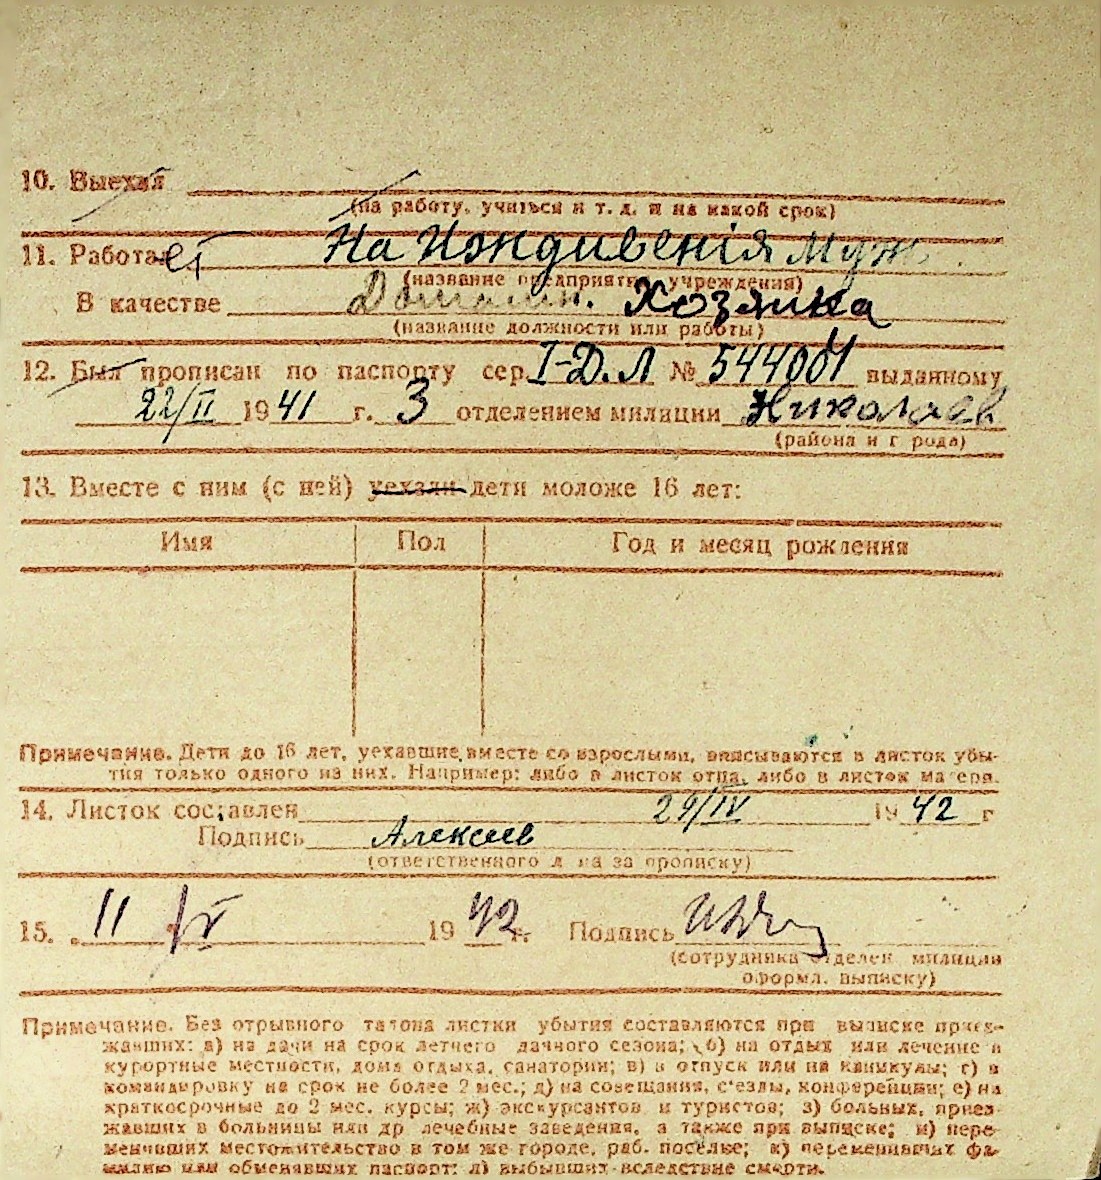 10. Выехал
(на работу, учиться и т. д. и на какой срок)
11. Работает На Иждивенія муж
(название предприятия, учреждения)
В качестве Домашн. Хозяйка
(название должности или работы)
12. Был прописан по паспорту сер. I-Д.Л № 544001 выданному
22/II 1941 г. 3 отделением милиции Николаев
(района и города)
13. Вместе с ним (с ней) уехали дети моложе 16 лет:
Имя Пол Год и месяц рождения
Примечание. Дети до 16 лет, уехавшие вместе со взрослыми, вписываются в листок убы-
тия только одного из них. Например: либо в листок отца, либо в листок матери.
14. Листок составлен 29/IV 1942 г
Подпись Алексеев
(ответственного л на за прописку)
15. 11 /V 1942 г. Подпись
(сотрудника отделен. милиции
оформл. выписку)
Примечание. Без отрывного талона листки убытия составляются при выписке приез-
жавших: а) на дачи на срок летнего дачного сезона; б) на отдых или лечение в
курортные местности, дома отдыха, санатории; в) в отпуск или на каникулы; г) в
командировку на срок не более 2 мес.; д) на совещания, с'езды, конференции; е) на
краткосрочные до 2 мес. курсы; ж) экскурсантов и туристов; з) больных, приез-
жавших в больницы или др лечебные заведения, а также при выписке; и) пере-
менивших местожительство в том же городе, раб. поселке; к) переменивших фа-
милию или обменявших паспорт; л) выбывших вследствие смерти.